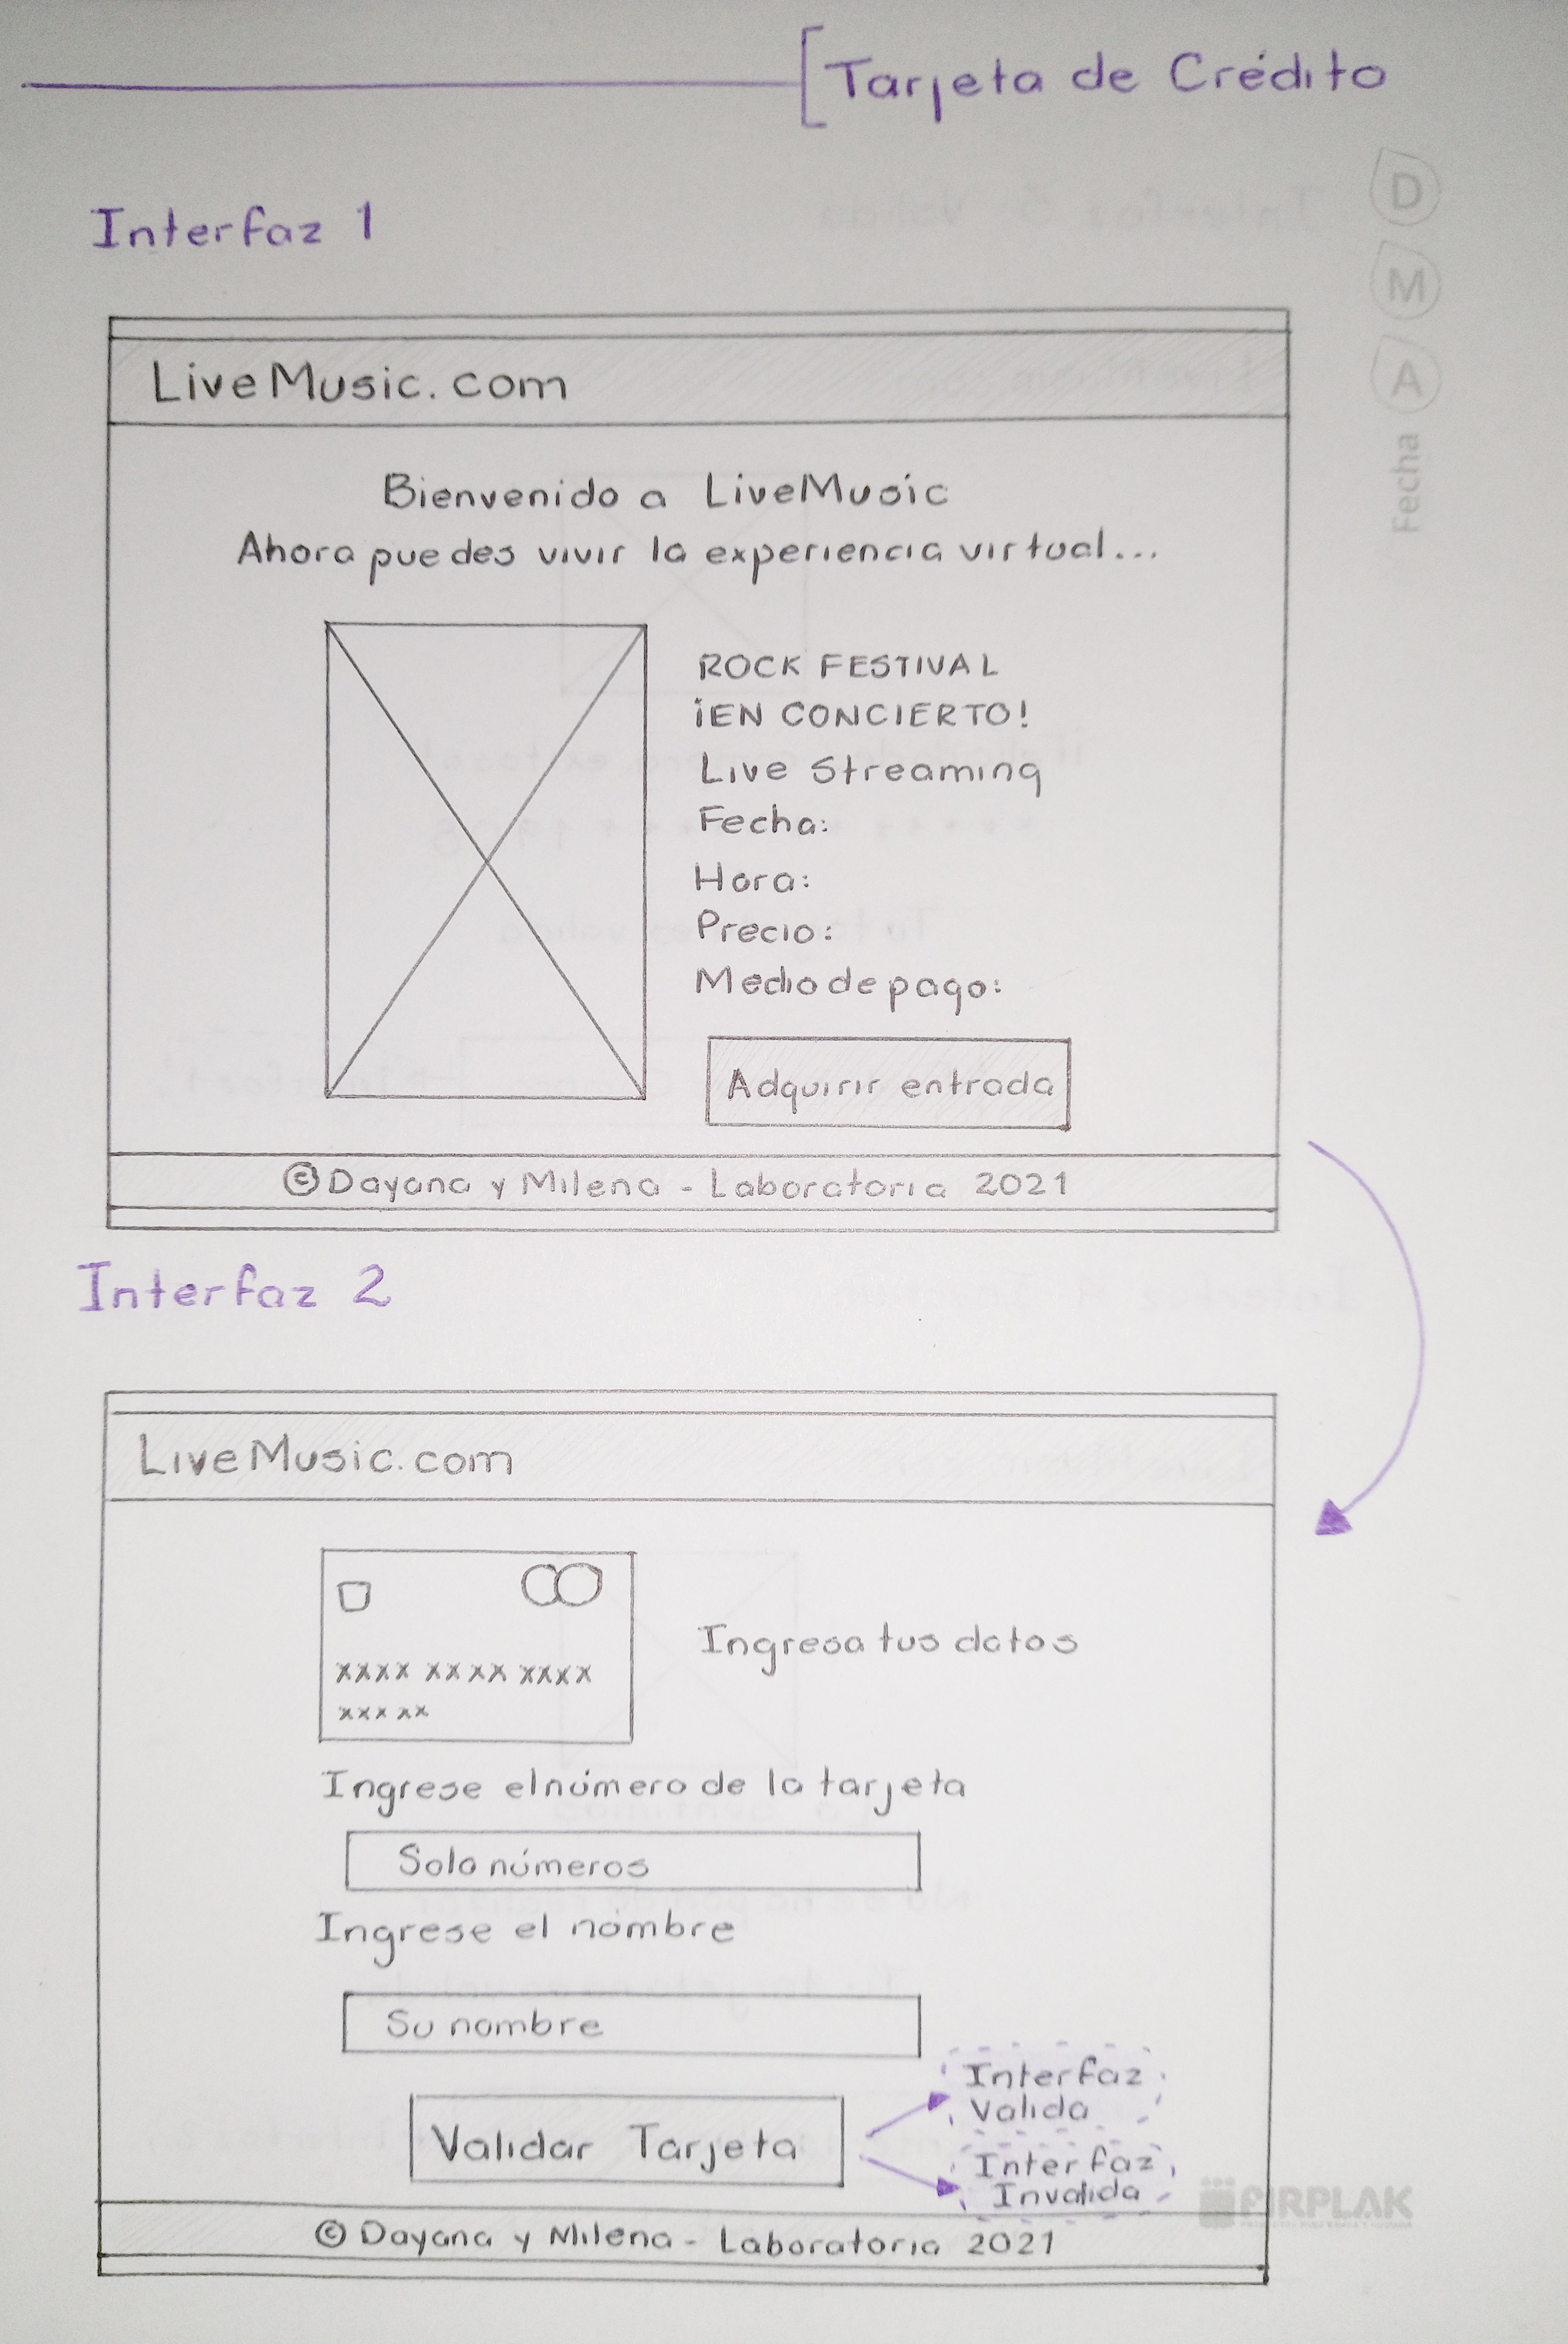 Tarjeta de Crédito
Interfaz 1
D
M
A
Fecha
LiveMusic.com
Bienvenido a LiveMusic
Ahora puedes vivir la experiencia virtual...
ROCK FESTIVAL
¡EN CONCIERTO!
Live Streaming
Fecha:
Hora:
Precio:
Medio de pago:
Adquirir entrada
©Dayana y Milena - Laboratoria 2021
Interfaz 2
LiveMusic.com
xxxx xxxx xxxx
xxx xx
Ingresa tus datos
Ingrese el número de la tarjeta
Solo números
Ingrese el nombre
Su nombre
Validar Tarjeta
Interfaz
Valida
Interfaz
Invalida
FIRPLAK
© Dayana y Milena - Laboratoria 2021